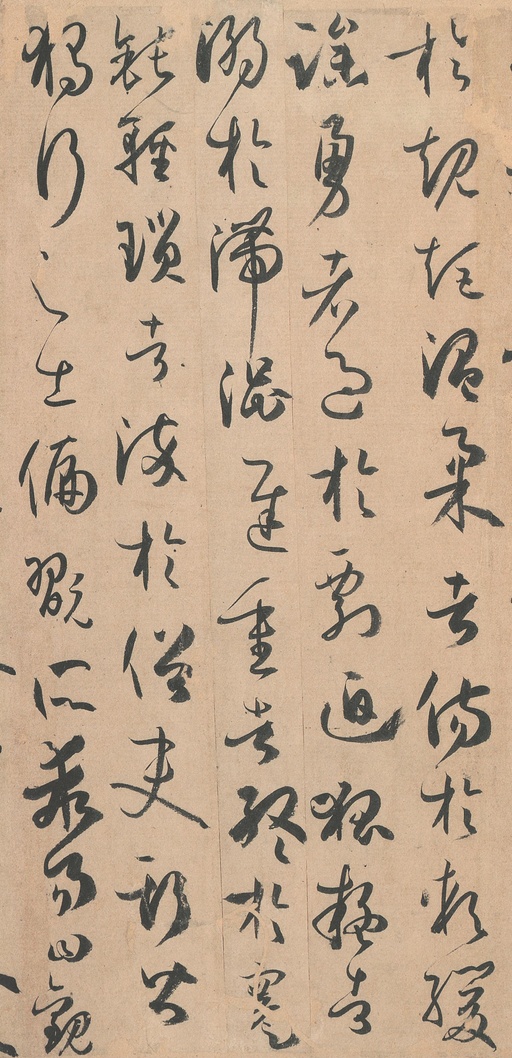 於規矩溫柔者傷於軟緩
躁勇者過於剽迫狐疑者
溺於滯澀遲重者終於蹇
鈍輕瑣者淬於俗吏斯皆
獨行之士偏翫所乖易曰觀